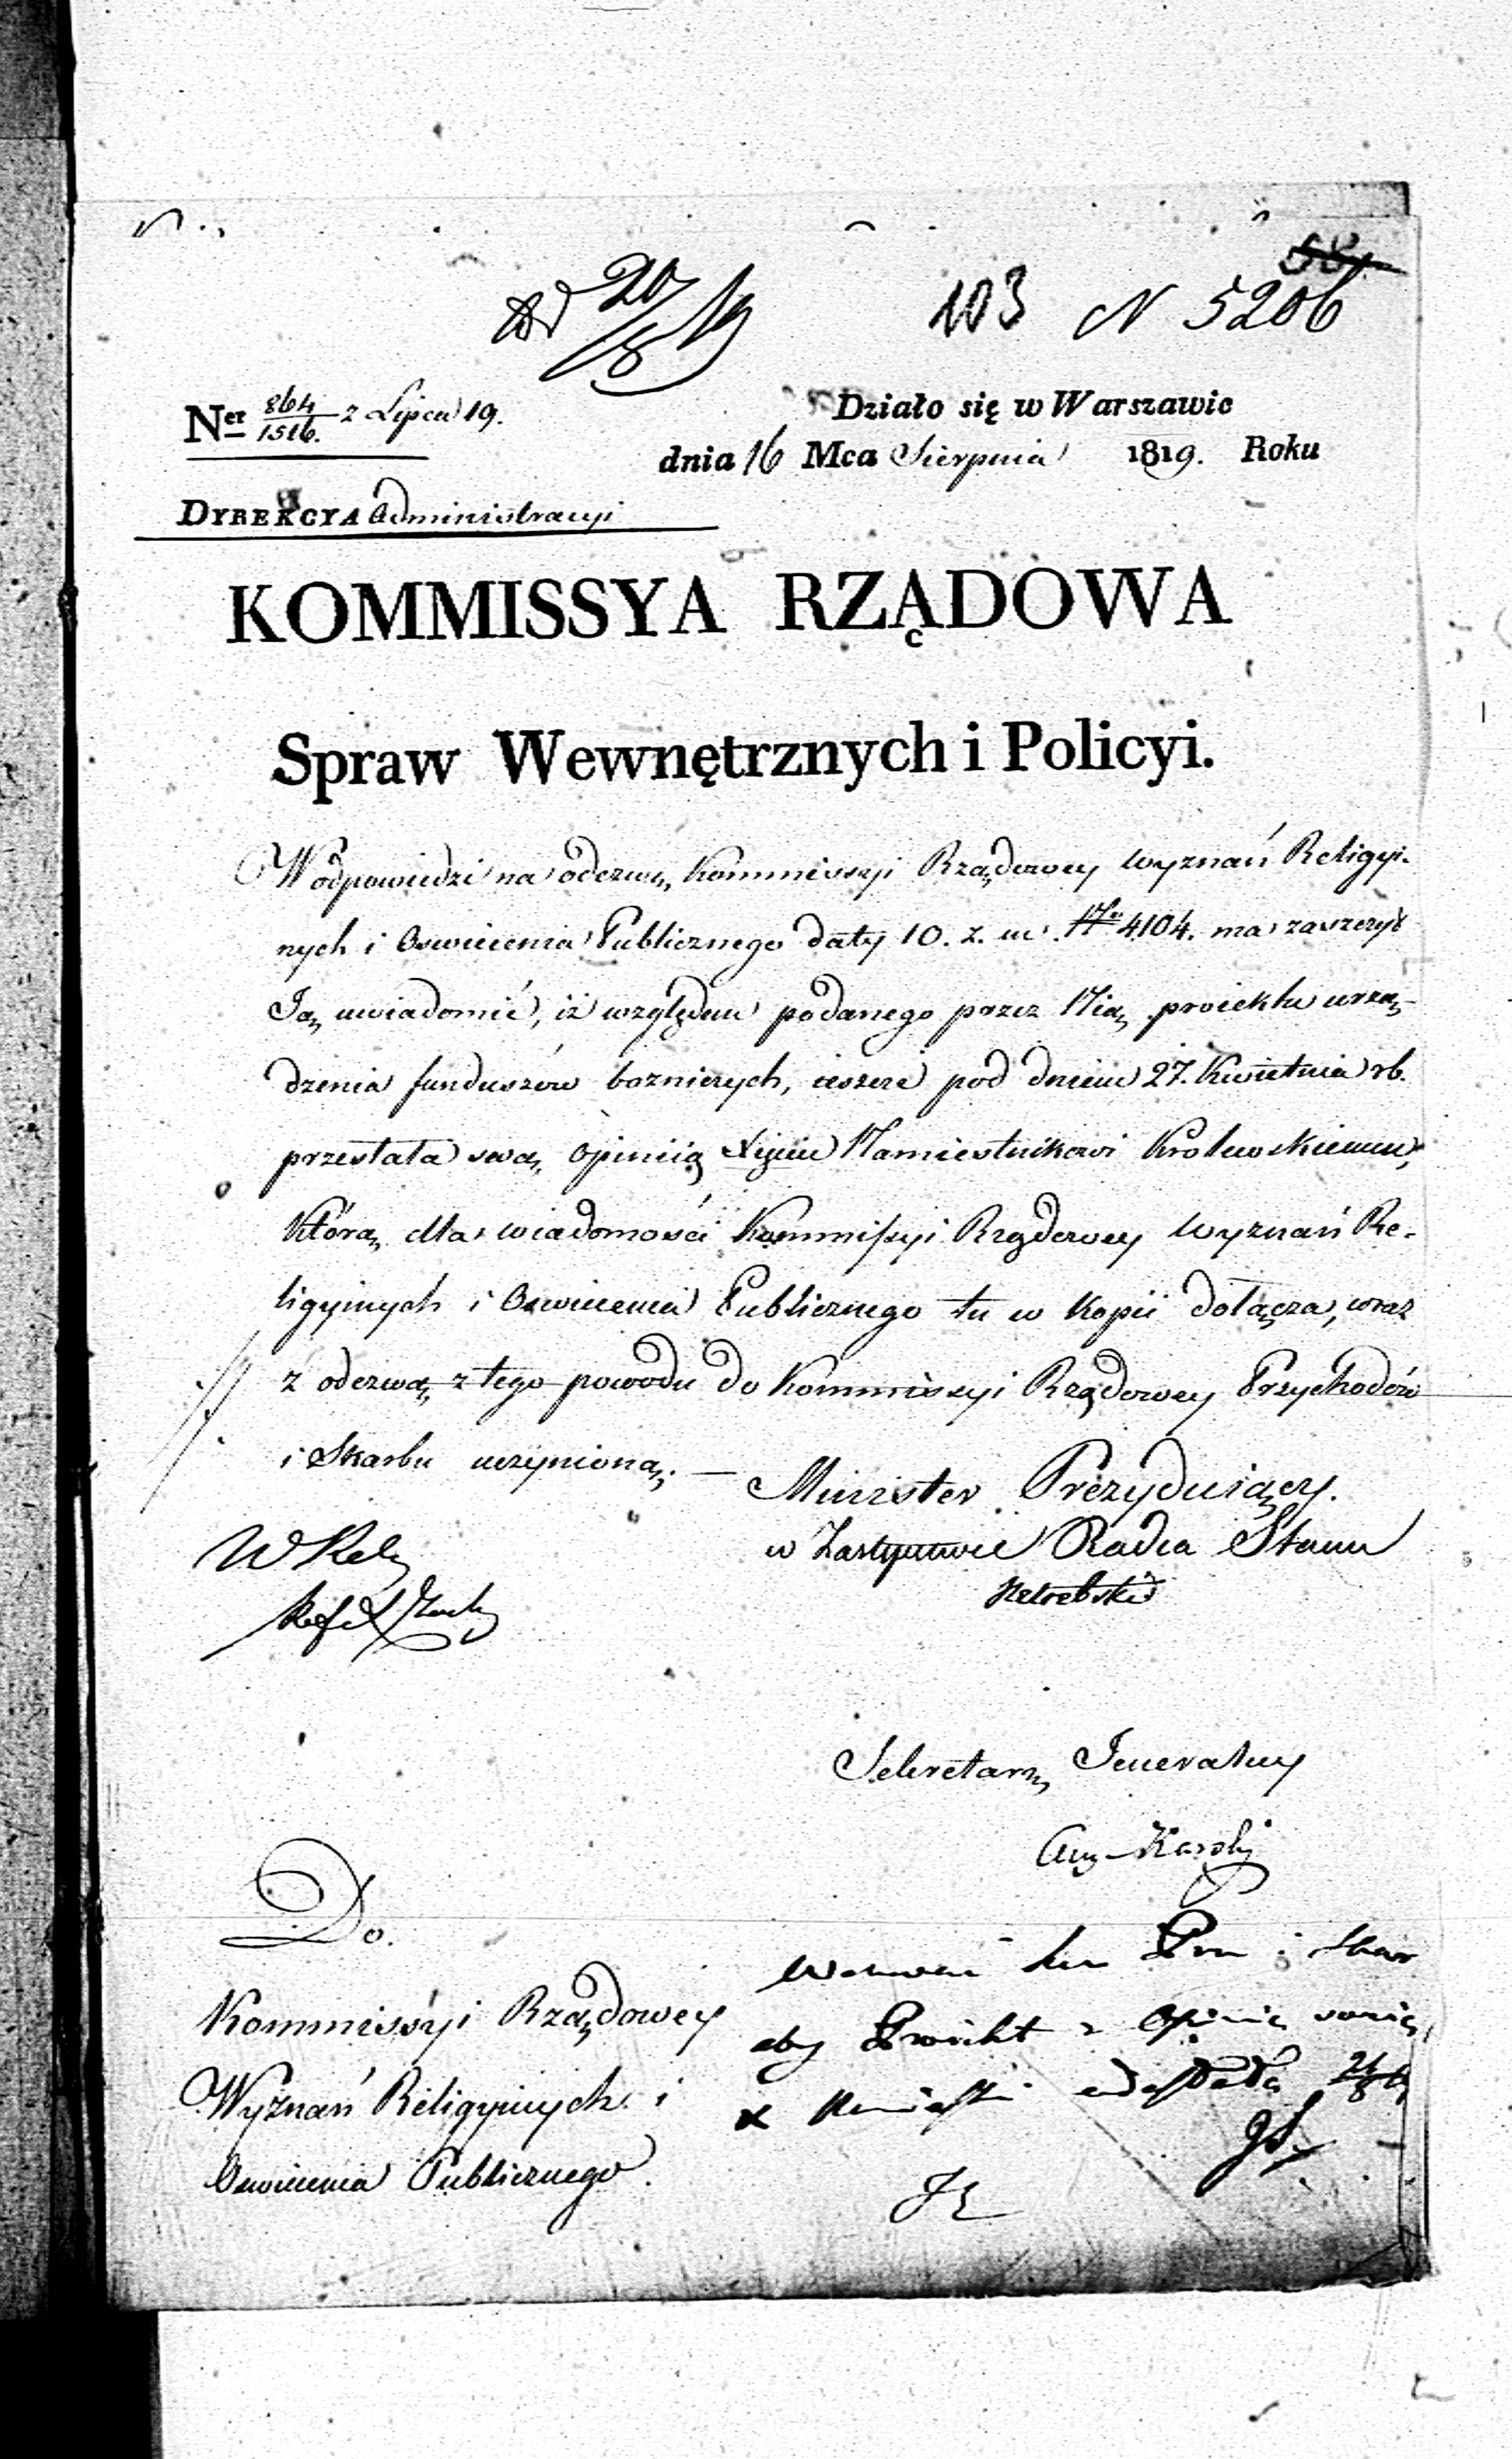 68
20/8 19
103 N 5206
Ner 864/1516. z Lipca 19.
Działo się w Warszawie
dnia 16 Mca Sierpnia 1819. Roku
DYREKCYA Administracyi
KOMMISSYA RZĄDOWA
Spraw Wewnętrznych i Policyi.
W odpowiedzi na odezwę Kommissyi Rządowey Wyznań Religyi-
nych i Oswiecenia Publicznego daty 10. z. m. Nr 4104. ma zaszczyt
Ją uwiadomić, iż względem podanego przez Nią proiektu urzą-
dzenia funduszów bozniczych, ieszcze pod dniem 27. Kwietnia rb.
przesłała swą opinią Xięciu Namiestnikowi Krolewskiemu,
którą dla wiadomości Kommissyi Rządowey Wyznań Re-
ligyinych i Oswiecenia Publicznego tu w Kopii dołącza, wraz
z odezwą z tego powodu do Kommissyi Rządowey Przychodów
i Skarbu uczynioną. —
Minister Prezyduiący.
w Zastępstwie Radca Stanu
Sekretarz Jeneralny
Do.
Kommissyi Rządowey
Wyznań Religyinych i
Oswiecenia Publicznego.
aby Proiekt z Opinią